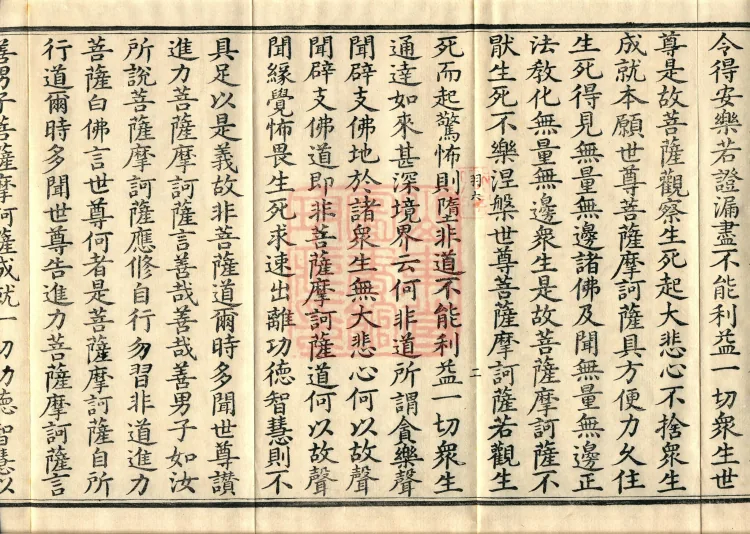 令得安樂若證漏盡不能利益一切衆生世
尊是故菩薩觀察生死起大悲心不捨衆生
成就本願世尊菩薩摩訶薩具方便力久住
生死得見無量無邊諸佛及聞無量無邊正
法教化無量無邊衆生是故菩薩摩訶薩不
猒生死不樂涅槃世尊菩薩摩訶薩若觀生
羽六
二
死而起驚怖則墮非道不能利益一切衆生
通達如來甚深境界云何非道所謂貪樂聲
聞辟支佛地於諸衆生無大悲心何以故聲
聞辟支佛道即非菩薩摩訶薩道何以故聲
聞緣覺怖畏生死求速出離功德智慧則不
具足以是義故非菩薩道爾時多聞世尊讃
進力菩薩摩訶薩言善哉善哉善男子如汝
所說菩薩摩訶薩應修自行勿習非道進力
菩薩白佛言世尊何者是菩薩摩訶薩自所
行道爾時多聞世尊告進力菩薩摩訶薩言
善男子菩薩摩訶薩成就一切功德智慧以